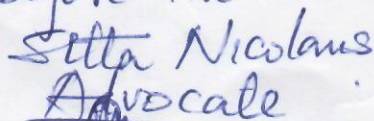 Sitta Nicolaus
Advocate